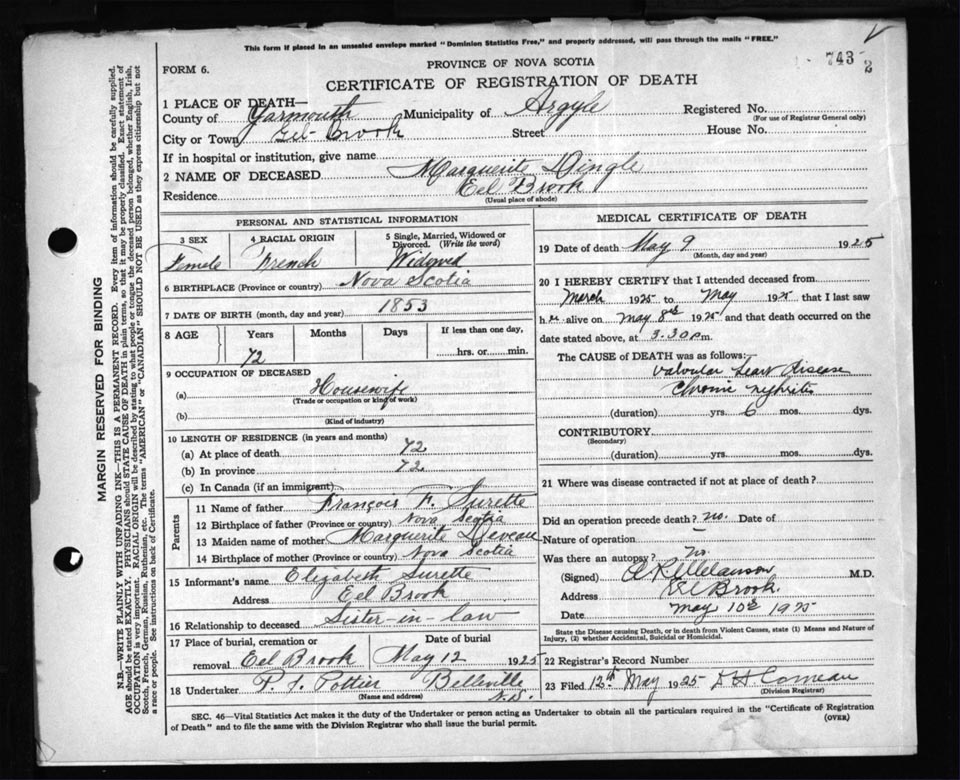 This form if placed in an unsealed envelope marked "Dominion Statistics Free," and properly addressed, will pass through the mails "FREE."
743 2
FORM 6.
PROVINCE OF NOVA SCOTIA
CERTIFICATE OF REGISTRATION OF DEATH
1 PLACE OF DEATH—
County of Yarmouth Municipality of Argyle Registered No.
(For use of Registrar General only)
City or Town Eel Brook Street House No.
If in hospital or institution, give name
2 NAME OF DECEASED Marguerite Dingle
Residence Eel Brook
(Usual place of abode)
PERSONAL AND STATISTICAL INFORMATION
3 SEX
Female
4 RACIAL ORIGIN
French
5 Single, Married, Widowed or Divorced. (Write the word)
Widowed
6 BIRTHPLACE (Province or country) Nova Scotia
7 DATE OF BIRTH (month, day and year) 1853
8 AGE Years Months Days If less than one day,
72 hrs. or min.
9 OCCUPATION OF DECEASED
(a) Housewife
(Trade or occupation or kind of work)
(b)
(Kind of industry)
10 LENGTH OF RESIDENCE (in years and months)
(a) At place of death 72
(b) In province 72
(c) In Canada (if an immigrant)
Parents
11 Name of father François F. Surette
12 Birthplace of father (Province or country) Nova Scotia
13 Maiden name of mother Marguerite
14 Birthplace of mother (Province or country) Nova Scotia
15 Informant's name Elizabeth Surette
Address Eel Brook
16 Relationship to deceased Sister-in-law
17 Place of burial, cremation or removal Eel Brook
Date of burial May 12 1925
18 Undertaker P. J. Pottier Belleville
(Name and address) N.S.
MEDICAL CERTIFICATE OF DEATH
19 Date of death May 9 1925
(Month, day and year)
20 I HEREBY CERTIFY that I attended deceased from
March 1925 to May 1925 that I last saw
her alive on May 8th 1925 and that death occurred on the
date stated above, at 3.30 p m.
The CAUSE of DEATH was as follows:
Valvular Heart Disease
Chronic nephritis
(duration) yrs. 6 mos. dys.
CONTRIBUTORY
(Secondary)
(duration) yrs. mos. dys.
21 Where was disease contracted if not at place of death?
Did an operation precede death? no. Date of
Nature of operation
Was there an autopsy? no.
(Signed) M.D.
Address Eel Brook.
Date May 10th 1925
State the Disease causing Death, or in death from Violent Causes, state (1) Means and Nature of Injury, (2) whether Accidental, Suicidal or Homicidal.
22 Registrar's Record Number
23 Filed 12th May 1925 Comeau
(Division Registrar)
SEC. 46—Vital Statistics Act makes it the duty of the Undertaker or person acting as Undertaker to obtain all the particulars required in the "Certificate of Registration
of Death" and to file the same with the Division Registrar who shall issue the burial permit.
(OVER)
MARGIN RESERVED FOR BINDING
N.B.—WRITE PLAINLY WITH UNFADING INK—THIS IS A PERMANENT RECORD. Every item of information should be carefully supplied.
AGE should be stated EXACTLY. PHYSICIANS should STATE CAUSE OF DEATH in plain terms, so that it may be properly classified. Exact statement of
OCCUPATION is very important. RACIAL ORIGIN will be described by stating to what people or tongue the deceased person belonged, whether English, Irish,
Scotch, French, German, Russian, Ruthenian, etc. The terms "AMERICAN" or "CANADIAN" SHOULD NOT BE USED as they express citizenship but not
a race or people. See instructions on back of Certificate.